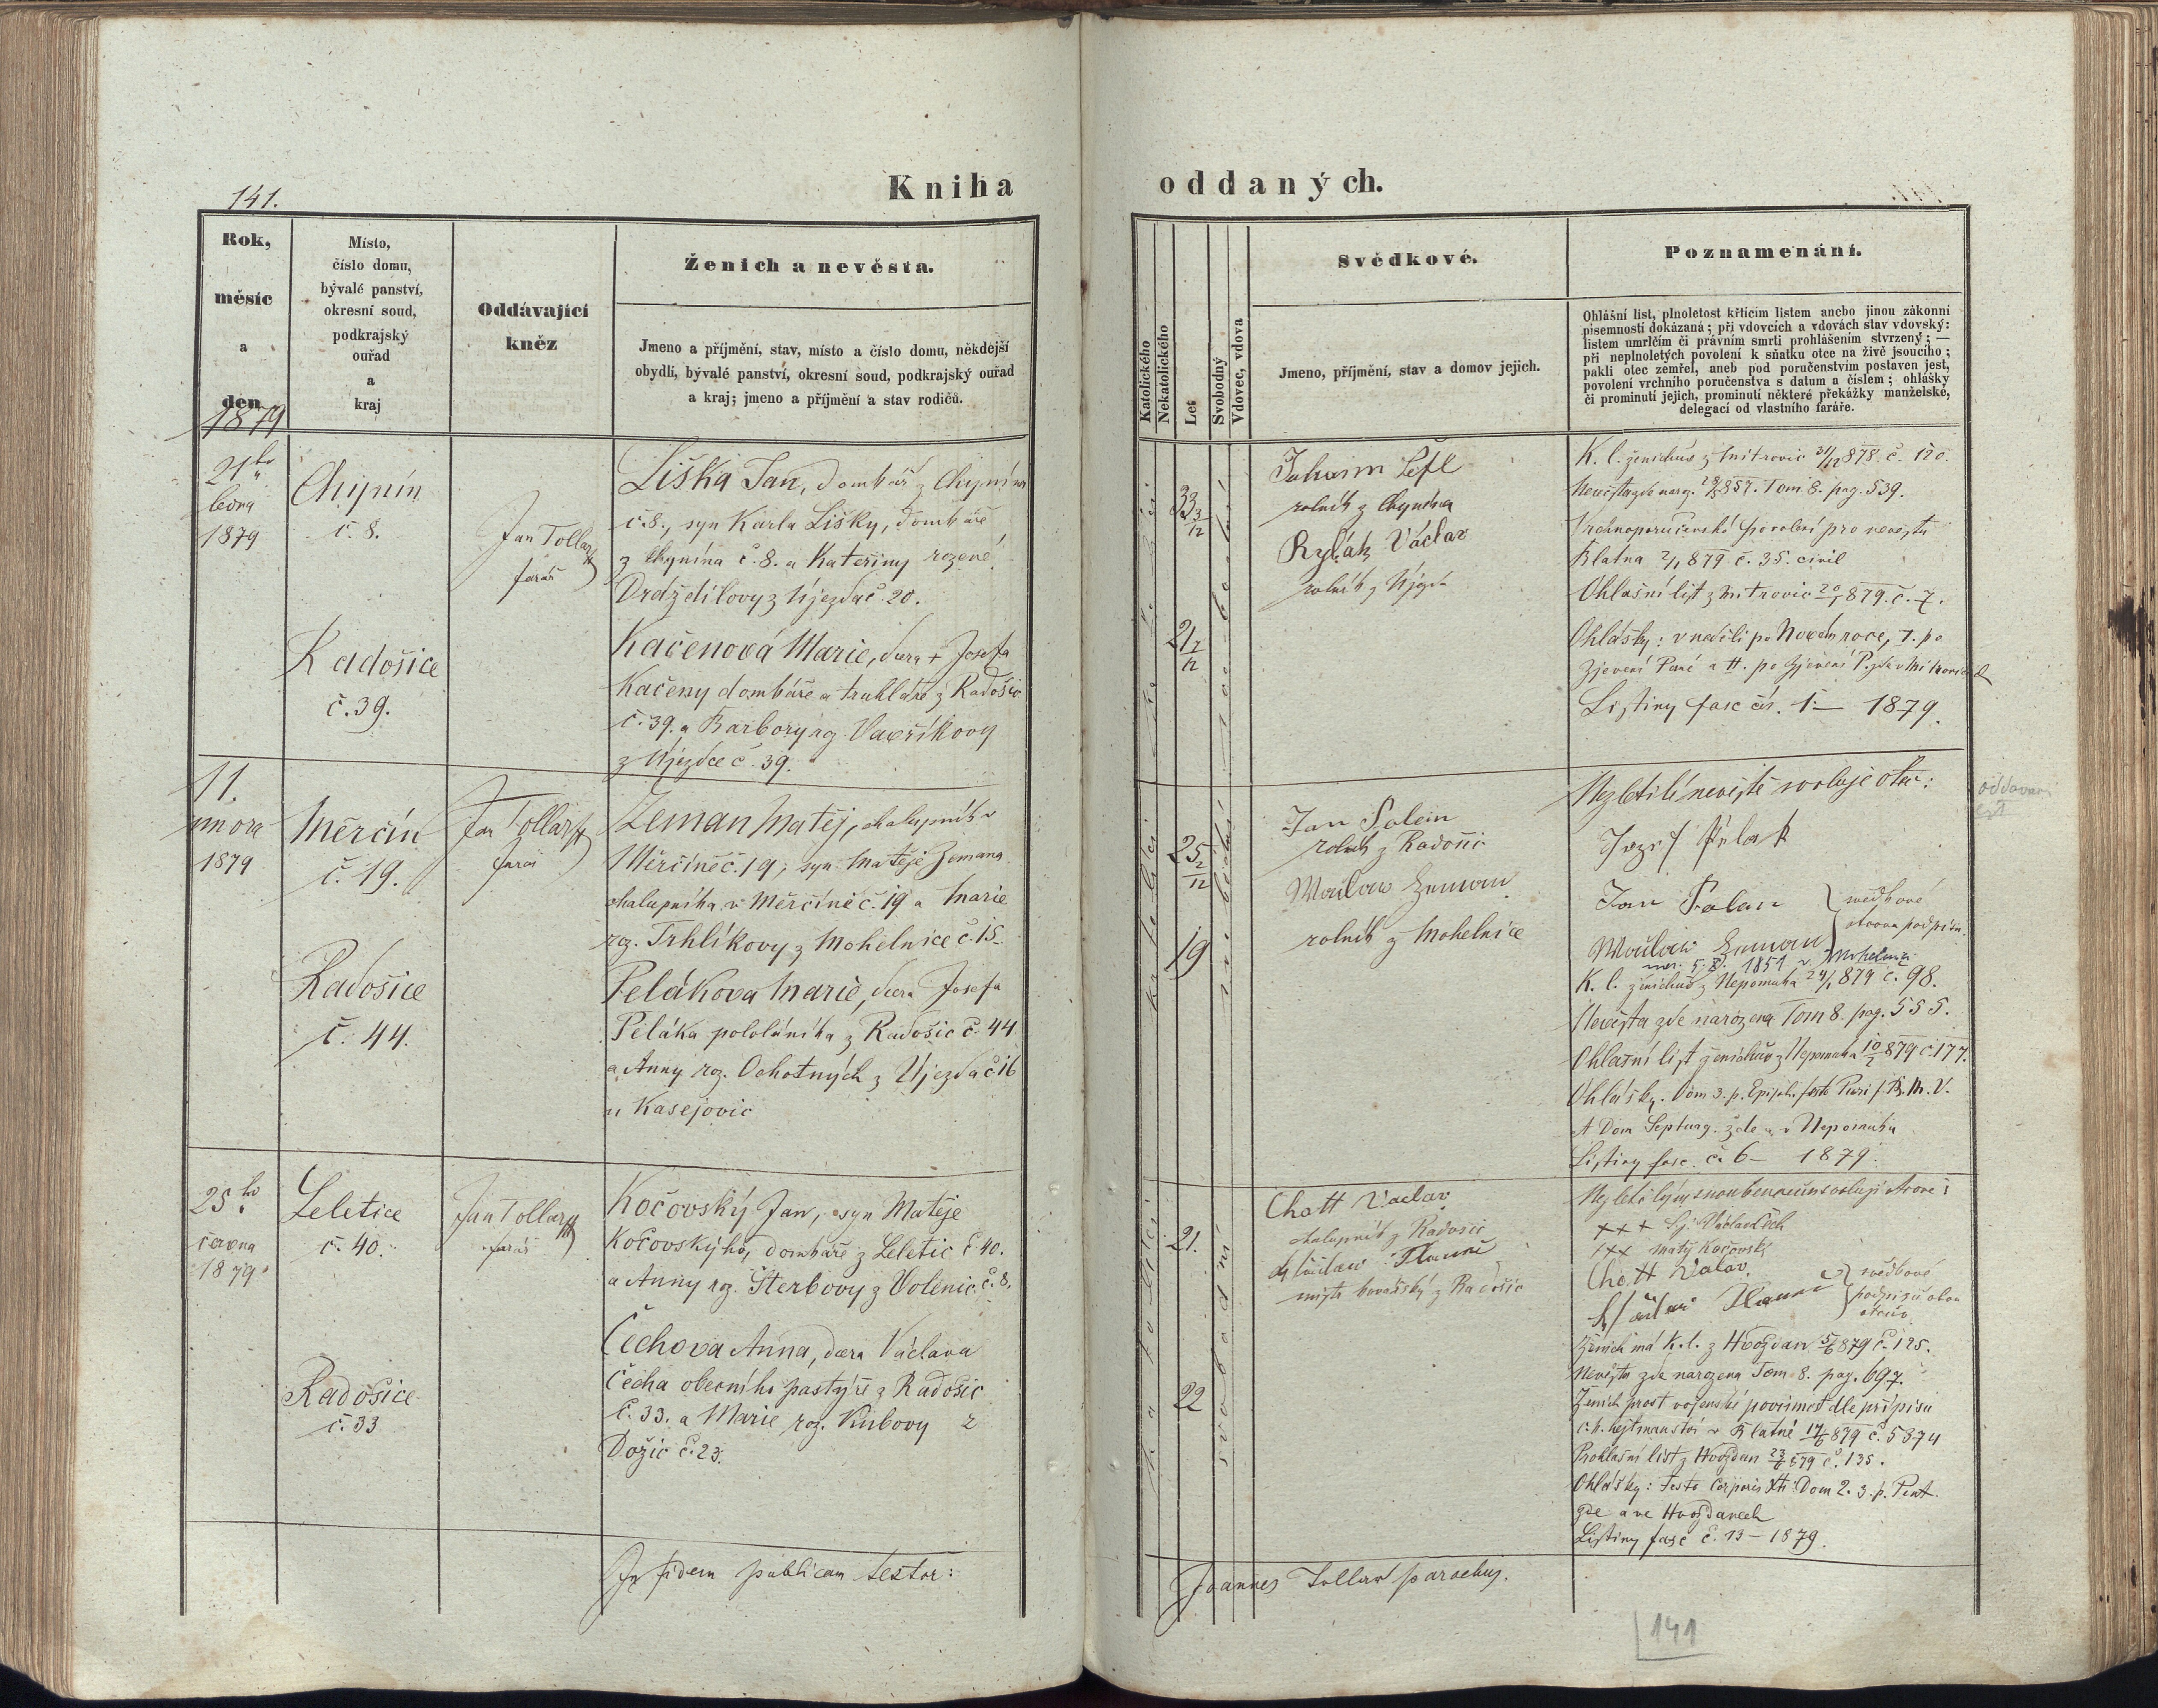 141.
Kniha
oddaných.
Rok,
měsíc
a
den
1879
Místo,
číslo domu,
bývalé panství,
okresní soud,
podkrajský
ouřad
a
kraj
Oddávající
kněz
Ženich a nevěsta.
Jmeno a příjmění, stav, místo a číslo domu, někdejší
obydlí, bývalé panství, okresní soud, podkrajský ouřad
a kraj; jmeno a příjmění a stav rodičů.
Katolického
Nekatolického
Let
Svobodný
Vdovec, vdova
Svědkové.
Jmeno, příjmění, stav a domov jejich.
Poznamenání.
Ohlášní list, plnoletost křticím listem anebo jinou zákonní
písemností dokázaná; při vdovcích a vdovách stav vdovský:
listem umrlčím či právním smrti prohlášením stvrzený; —
při neplnoletých povolení k sňatku otce na živě jsoucího;
pakli otec zemřel, aneb pod poručenstvím postaven jest,
povolení vrchního poručenstva s datum a číslem; ohlášky
či prominutí jejich, prominutí některé překážky manželské,
delegací od vlastního faráře.
21ho
ledna
1879
Chynín
č. 8.
Jan Tollar
farář
Liška Jan, domkář z Chynína
č. 8., syn Karla Lišky, domkáře
z Chynína č. 8. a Kateřiny rozené
Drdždilovy z Újezda č. 20.
Radošice
č. 39.
Kačenová Marie, dcera + Josefa
Kačeny domkáře a truhláře z Radošic
č. 39. a Barbory rz. Vavříkovy
z Újezdce č. 39.
33 3/12
21 7/12
rolník z Chynína
Václav
rolník z Újezda
K. l. ženichův z Mitrovic 31/12 878. č. 120.
Nevěsta zde naroz. 857. Tom. 8. pag. 539.
Vrchnoporučenské povolení pro nevěstu
Blatna 2/1 879 č. 35. civil
Ohlašní list z Mitrovic 20/1 879. č. 7.
Ohlášky: v neděli po Novém roce, 1. po
Zjevení Páně a II. po Zjevení P. zde v Mitrovicích
Listiny fasc. čís. 1 — 1879.
11.
února
1879
Měrčín
č. 19.
Jan Tollar
farář
Zeman Matěj, chalupník v
Měrčíně č. 19, syn Matěje Zemana
chalupníka v Měrčíně č. 19 a Marie
rz. Trhlíkovy z Mohelnice č. 15.
Radošice
č. 44.
Peláková Marie, dcera Josefa
Peláka pololáníka z Radošic č. 44
a Anny rz. Ochotných z Újezda č 16
u Kasejovic
25 2/12
19
Jan
rolník z Radošic
Zeman
rolník z Mohelnice
Nezletilé nevěstě svoluje otec:
Josef Pelák
Jan
svědkové
otcova podpisu.
Zeman
nar. 5. 1851 v Mohelnici
K. l. ženichův z Nepomuka 24/1 879 č. 98.
Nevěsta zde narozena Tom 8. pag. 555.
Ohlašní list ženichův z Nepomuka 10/2 879 č. 177.
Ohlášky. Dom 3. p. Epiph. festo Purif. B. M. V.
et Dom Septuag. zde a v Nepomuku
Listiny fasc. č. 6 — 1879.
oddavací
25ho
června
1879
Leletice
č. 40.
Jan Tollar
farář
Kočovský Jan, syn Matěje
Kočovského, domkáře z Leletic č 40.
a Anny rz. Šterbovy z Volenic č. 8.
Radošice
č. 33
Čechova Anna, dcera Václava
Čecha obecního pastýře z Radošic
č. 33. a Marie roz. Kubovy z
Dožic č. 23.
21.
22
Chott Václav
chalupník z Radošic
mistr kovářský z Radošic
Nezletilým snoubencům svolují otcové:
+++ Václav Čech
+++ Matěj Kočovský
Chott
svědkové
podpisů obou
otců
Ženich má k. l. z Hvoždan 5/6 879 č. 125.
Nevěsta zde narozena Tom. 8. pag. 697.
Ženich prost vojenské povinnosti dle přípisu
c. k. hejtmanství v Blatné 17/6 879 č. 5874
Prohlašní list z Hvoždan 23/6 879 č. 135.
Ohlášky: Festo Corporis Xti Dom 2. 3. p. Pent.
zde a ve Hvoždanech
Listiny fasc č. 13 — 1879.
In fidem publicam testor:
Joannes Tollar parochus.
141